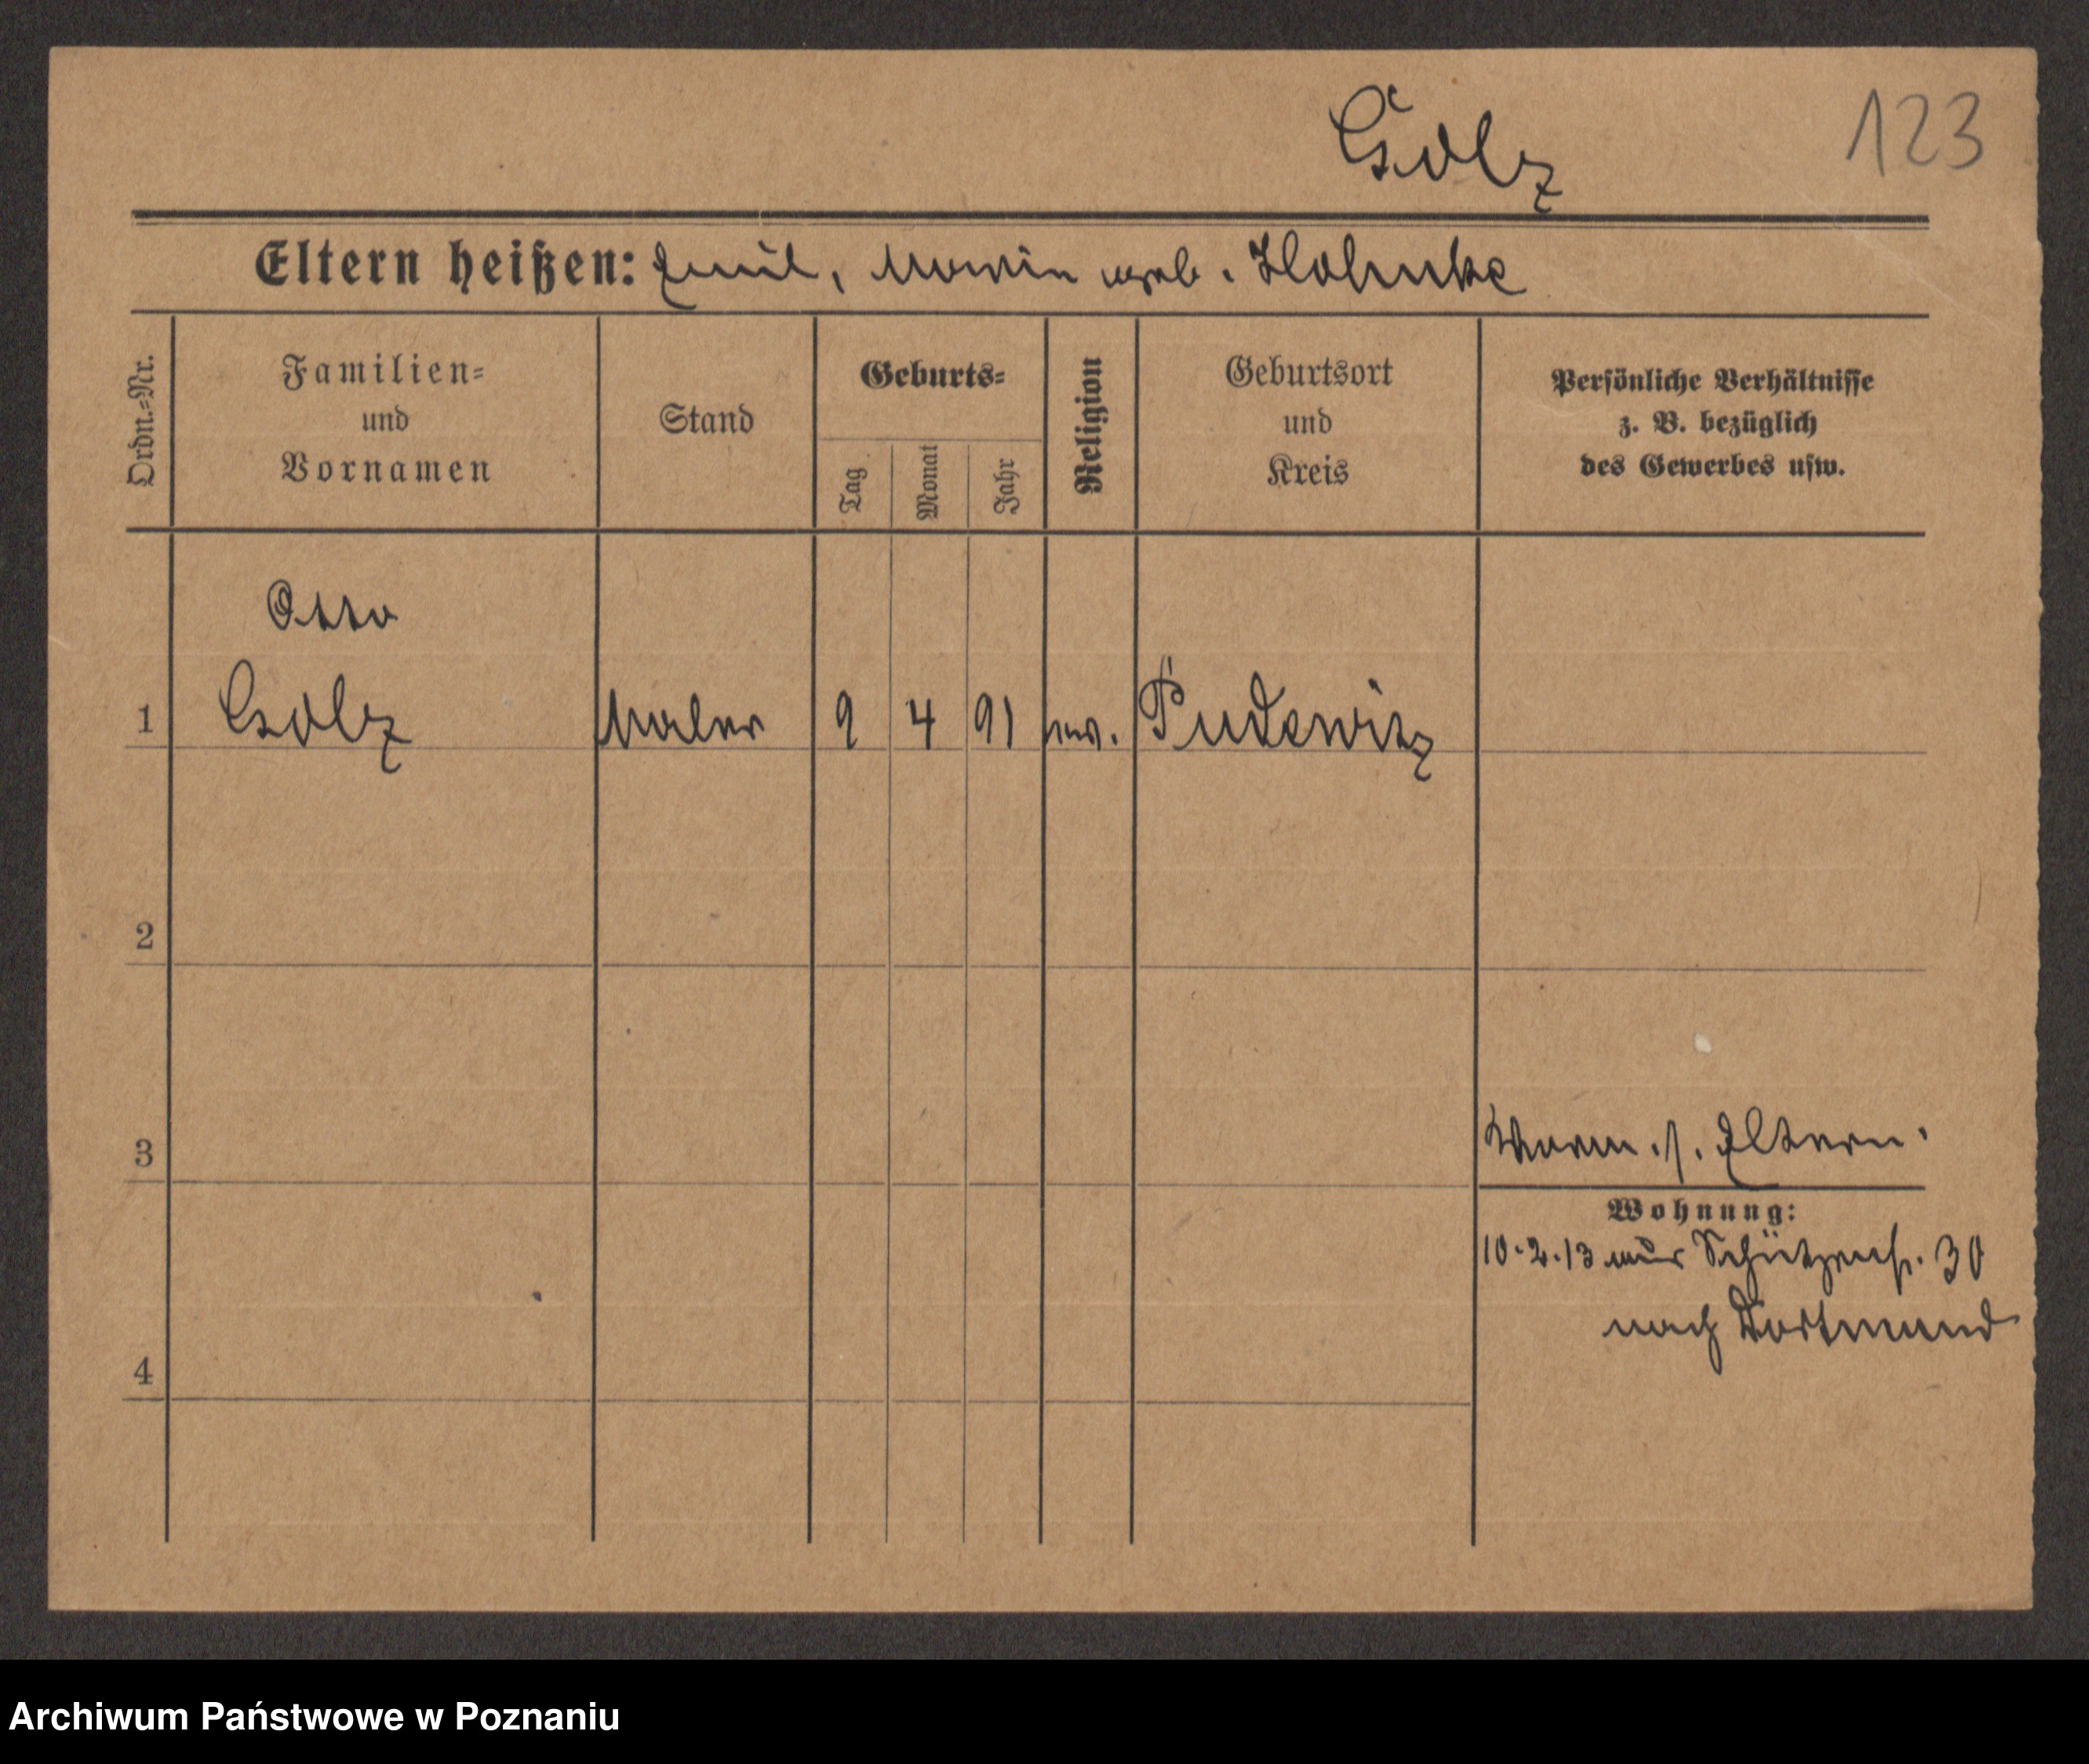 Golz
123
Eltern heißen: Emil, Maria geb. Hohnke
Ordn.=Nr.
Familien=
und
Vornamen
Stand
Geburts=
Tag
Monat
Jahr
Religion
Geburtsort
und
Kreis
Persönliche Verhältnisse
z. B. bezüglich
des Gewerbes usw.
Otto
1 Golz Maler 9 4 91 ev. Pudewitz
2
3
Verm. s. Eltern.
Wohnung:
10.2.13 aus Schützenstr. 30
nach Dortmund
4
Archiwum Państwowe w Poznaniu